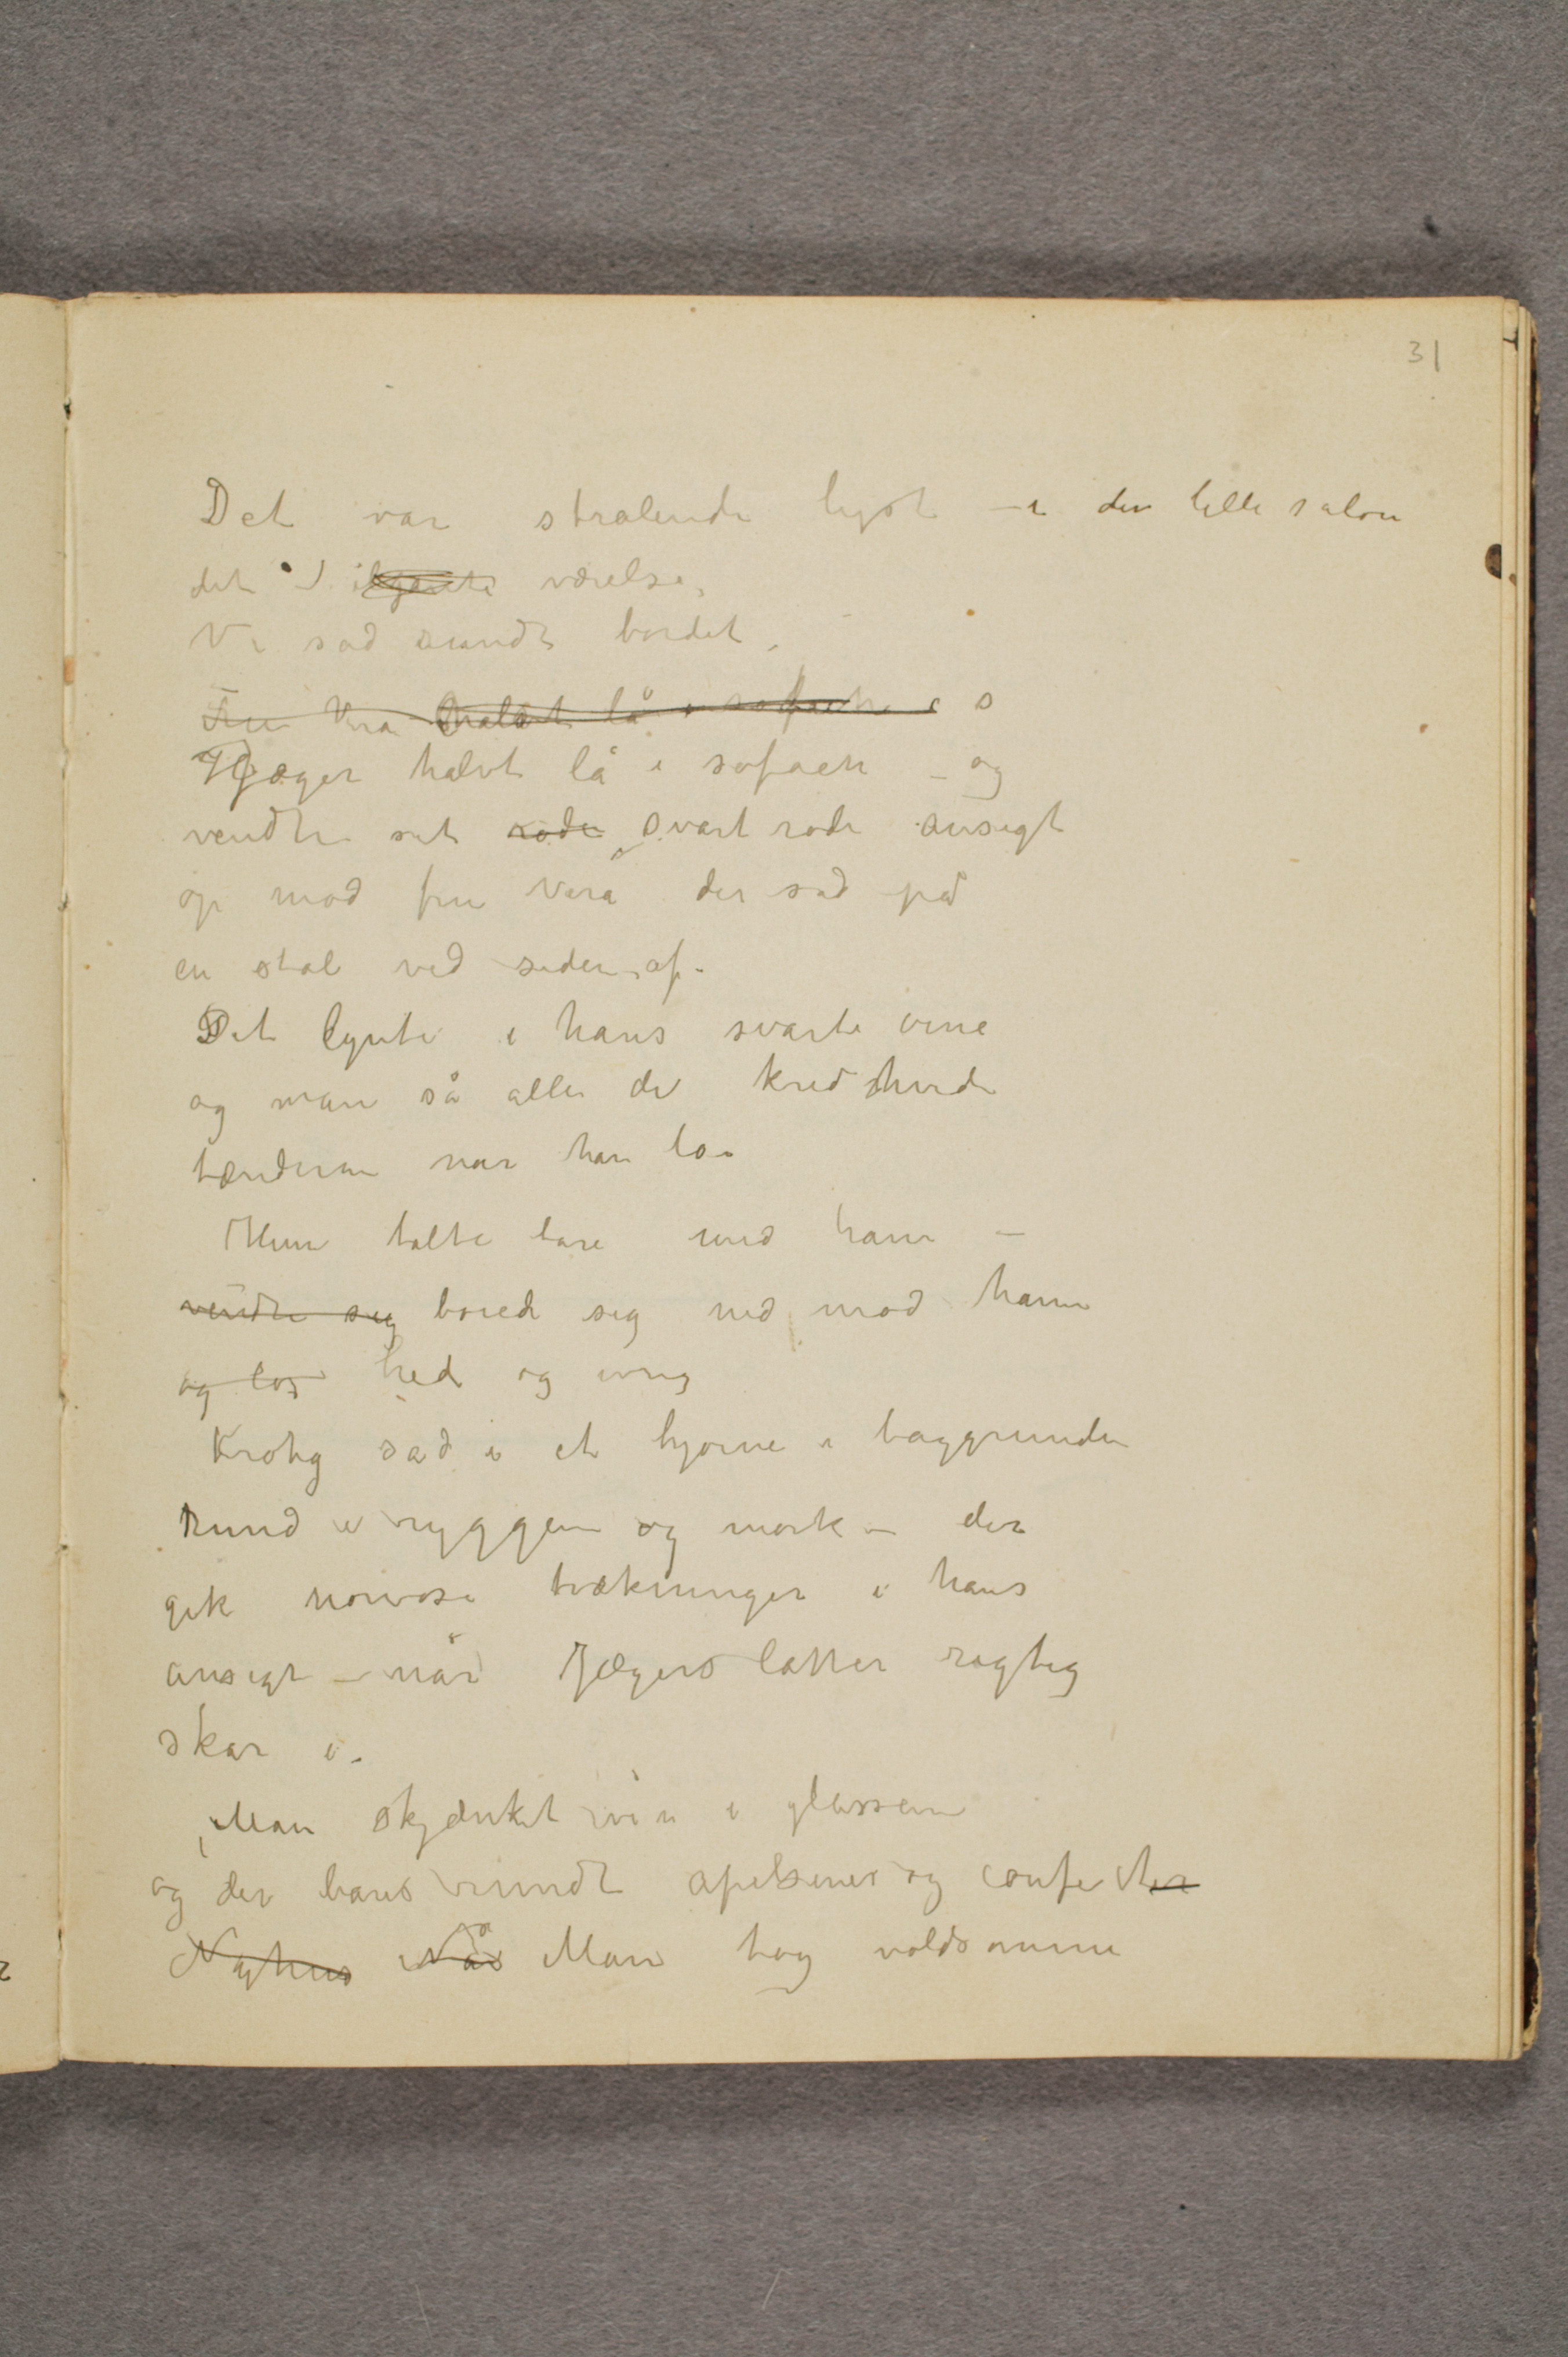 31
Det var stralende lyst – i den lille salon
det elegante værelse,
Vi sad rundt bordet.
Fru Vera halvt lå i sofaen i s
Jæger halvt lå i sofaen – og
vendte sit røde svart røde ansigt
op mod fru Vera der sad på
en stol ved siden af.
Det lynte i hans svarte øine
og man så alle de kridthvide
tænderne nar han lo.
Hun talte bare med ham –
vendte sig bøied sig ned mod ham
og lo hed og ivrig
Krohg sad i et hjørne i baggrunden
Rund i ryggen og mørk – der
gik nervøse trækninger i hans
ansigt – når Jægers latter rigtig
skar i.
Man skjænket vin i glassene
og der bares rundt apelsiner og confekter
Man tog voldsomme